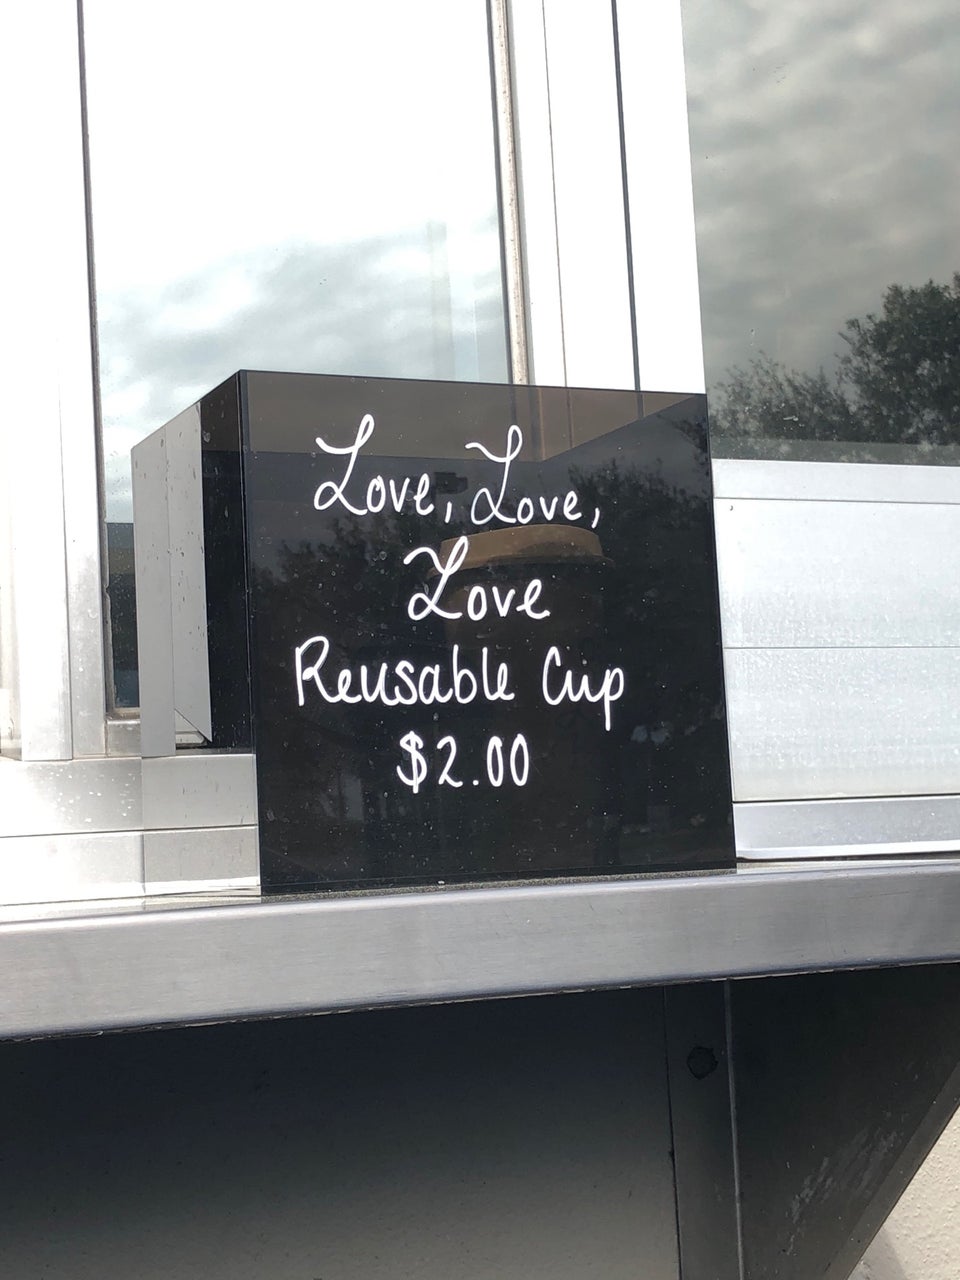 Love, Love,
Love
Reusable Cup
$2.00